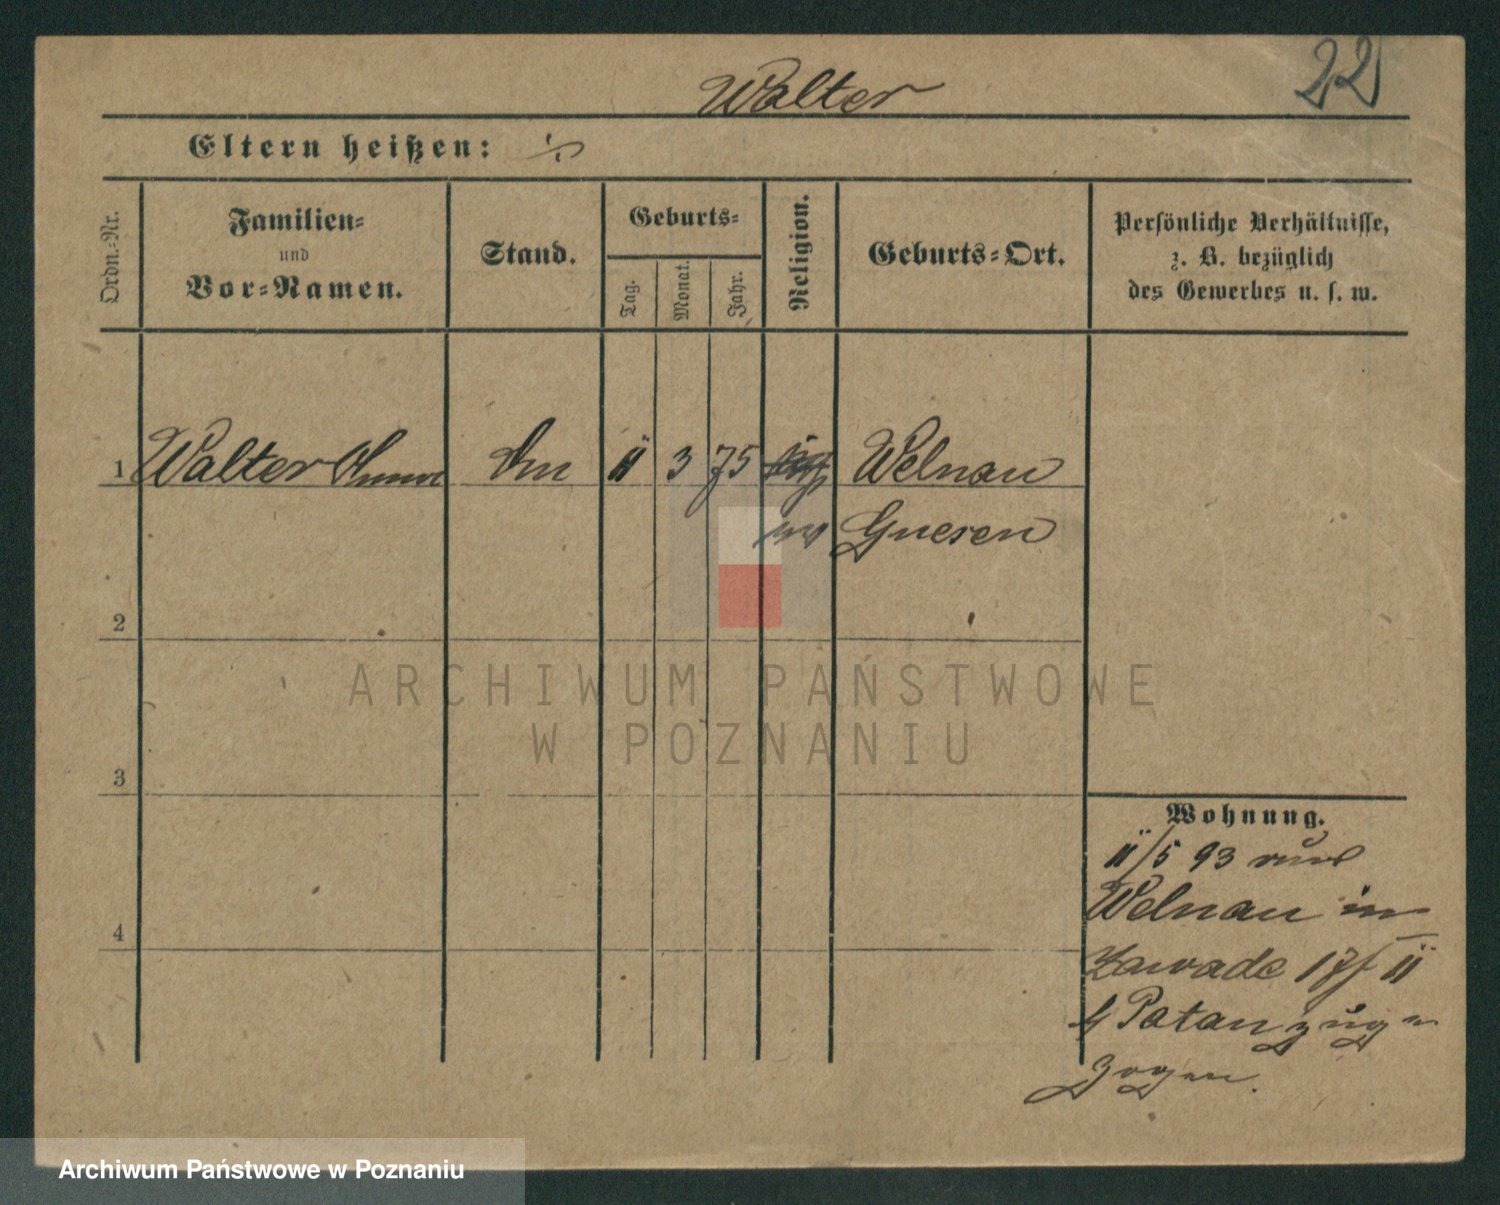 22
Walter
Eltern heißen: ./.
Ordn.-Nr.
Familien-
und
Vor-Namen.
Stand.
Geburts-
Tag.
Monat.
Jahr.
Religion.
Geburts-Ort.
Persönliche Verhältnisse,
z. B. bezüglich
des Gewerbes u. s. w.
1 Walter 11 3 75 Welnau
Gnesen
2
3
4
Wohnung.
11/5 93
Welnau in
Zawade 17
zuge
zogen.
ARCHIWUM PAŃSTWOWE
W POZNANIU
Archiwum Państwowe w Poznaniu